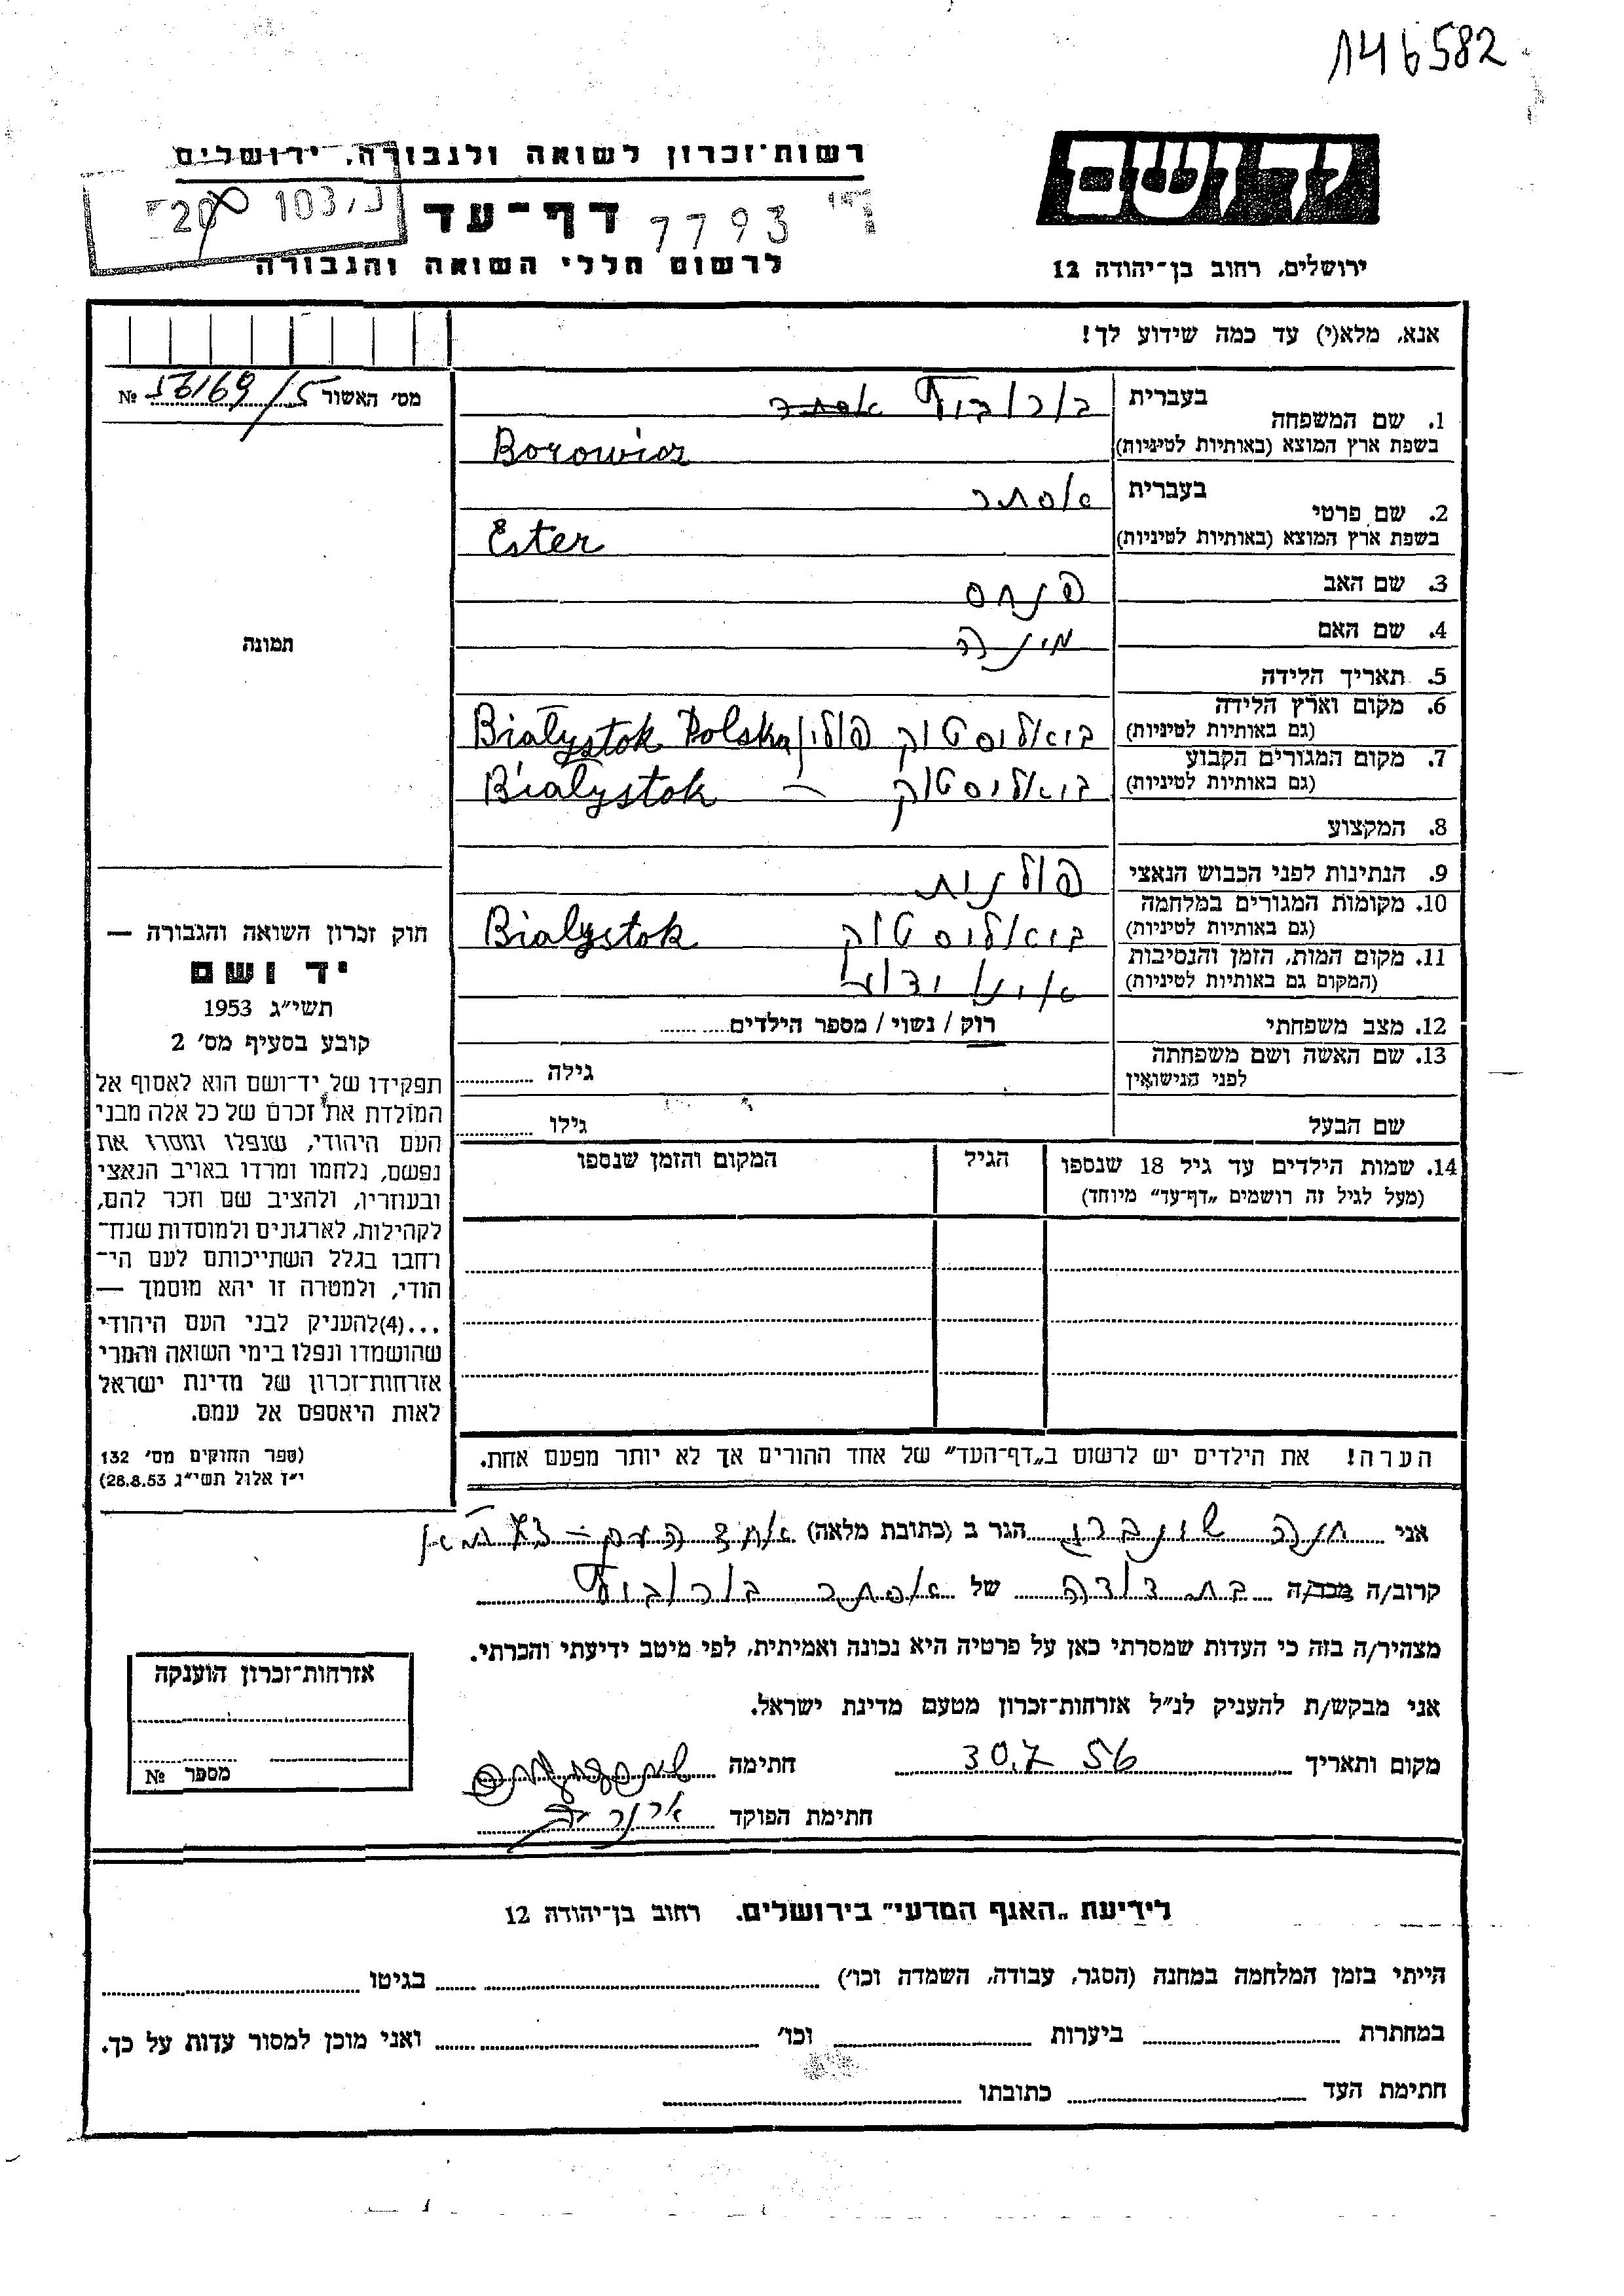 146582
יד ושם
רשות־זכרון לשואה ולגבורה, ירושלים
דף־עד
7793
103
20
לרשום חללי השואה והגבורה
ירושלים, רחוב בן־יהודה 12
אנא, מלא(י) עד כמה שידוע לך!
מס׳ האשור №
1. שם המשפחה
בעברית
בשפת ארץ המוצא (באותיות לטיניות)
Borowicz
2. שם פרטי
בעברית אסתר
בשפת ארץ המוצא (באותיות לטיניות) Ester
3. שם האב פנחס
4. שם האם
תמונה
5. תאריך הלידה
6. מקום וארץ הלידה
(גם באותיות לטיניות) ביאליסטוק פולין Białystok Polska
7. מקום המגורים הקבוע
(גם באותיות לטיניות) ביאליסטוק – Białystok
8. המקצוע
9. הנתינות לפני הכבוש הנאצי פולנית
10. מקומות המגורים במלחמה
(גם באותיות לטיניות) ביאליסטוק Białystok
11. מקום המות, הזמן והנסיבות
(המקום גם באותיות לטיניות)
12. מצב משפחתי רוק / נשוי / מספר הילדים
13. שם האשה ושם משפחתה
לפני הנישואין גילה
שם הבעל גילו
14. שמות הילדים עד גיל 18 שנספו הגיל המקום והזמן שנספו
(מעל לגיל זה רושמים „דף־עד” מיוחד)
חוק זכרון השואה והגבורה —
יד ושם
תשי״ג 1953
קובע בסעיף מס׳ 2
תפקידו של יד־ושם הוא לאסוף אל
המולדת את זכרם של כל אלה מבני
העם היהודי, שנפלו ומסרו את
נפשם, נלחמו ומרדו באויב הנאצי
ובעוזריו, ולהציב שם וזכר להם,
לקהילות, לארגונים ולמוסדות שנח־
רחבו בגלל השתייכותם לעם הי־
הודי, ולמטרה זו יהא מוסמך —
...(4)להעניק לבני העם היהודי
שהושמדו ונפלו בימי השואה והמרי
אזרחות־זכרון של מדינת ישראל
לאות היאספם אל עמם.
(ספר החוקים מס׳ 132
י״ז אלול תשי״ג 28.8.53)
הערה! את הילדים יש לרשום ב„דף־העד” של אחד ההורים אך לא יותר מפעם אחת.
אני חנה הגר ב (כתובת מלאה)
קרוב/ה מכר/ה בת דודה של אסתר
מצהיר/ה בזה כי העדות שמסרתי כאן על פרטיה היא נכונה ואמיתית, לפי מיטב ידיעתי והכרתי.
אני מבקש/ת להעניק לנ״ל אזרחות־זכרון מטעם מדינת ישראל.
מקום ותאריך 30.7 56 חתימה
חתימת הפוקד
אזרחות־זכרון הוענקה
מספר №
לידיעת „האגף המדעי” בירושלים. רחוב בן־יהודה 12
הייתי בזמן המלחמה במחנה (הסגר, עבודה, השמדה וכו׳) בגיטו
במחתרת ביערות וכו׳ ואני מוכן למסור עדות על כך.
חתימת העד כתובתו